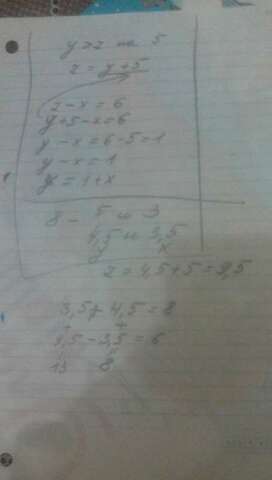 y > z на 5
z = y+5
z-x=6
y+5-x=6
y-x=6-5=1
y-x=1
y=1+x
8 - 5 и 3
4,5 и 3,5
y x
z=4,5+5=9,5
3,5+4,5=8
9,5-3,5=6
13 8